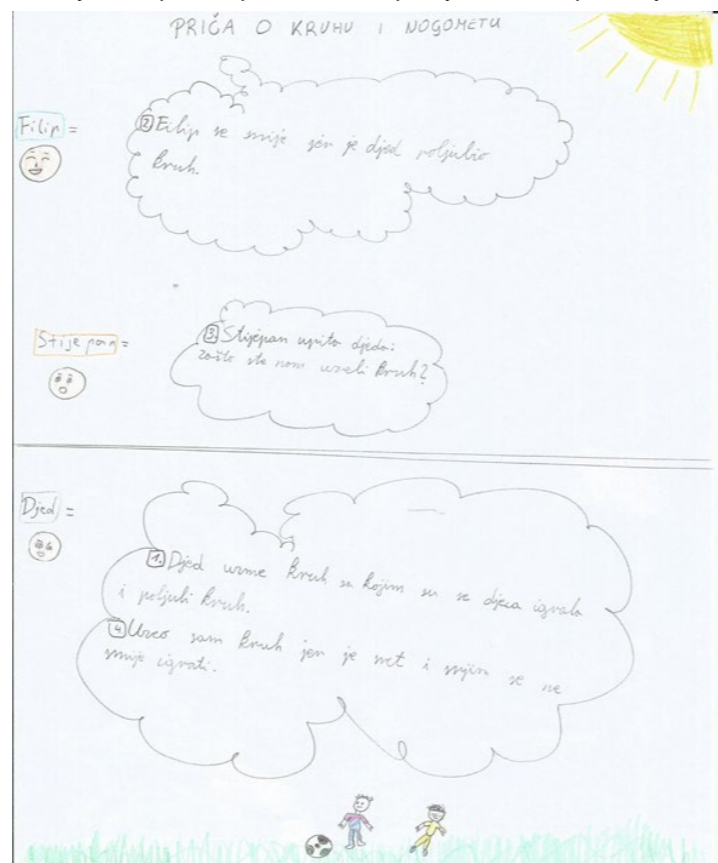 PRIČA O KRUHU I NOGOMETU
Filip =
2 Filip se smije jer je djed poljubio
kruh.
Stijepan =
3. Stijepan upita djeda:
zašto ste nam uzeli kruh?
Djed =
1. Djed uzme kruh sa kojim su se djeca igrala
i poljubi kruh.
4 Uzeo sam kruh jer je svet i njim se ne
smije igrati.